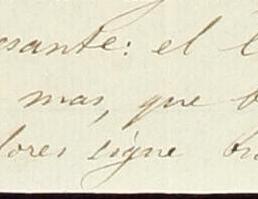 esante: el l
mas, que b
lores sigue bra